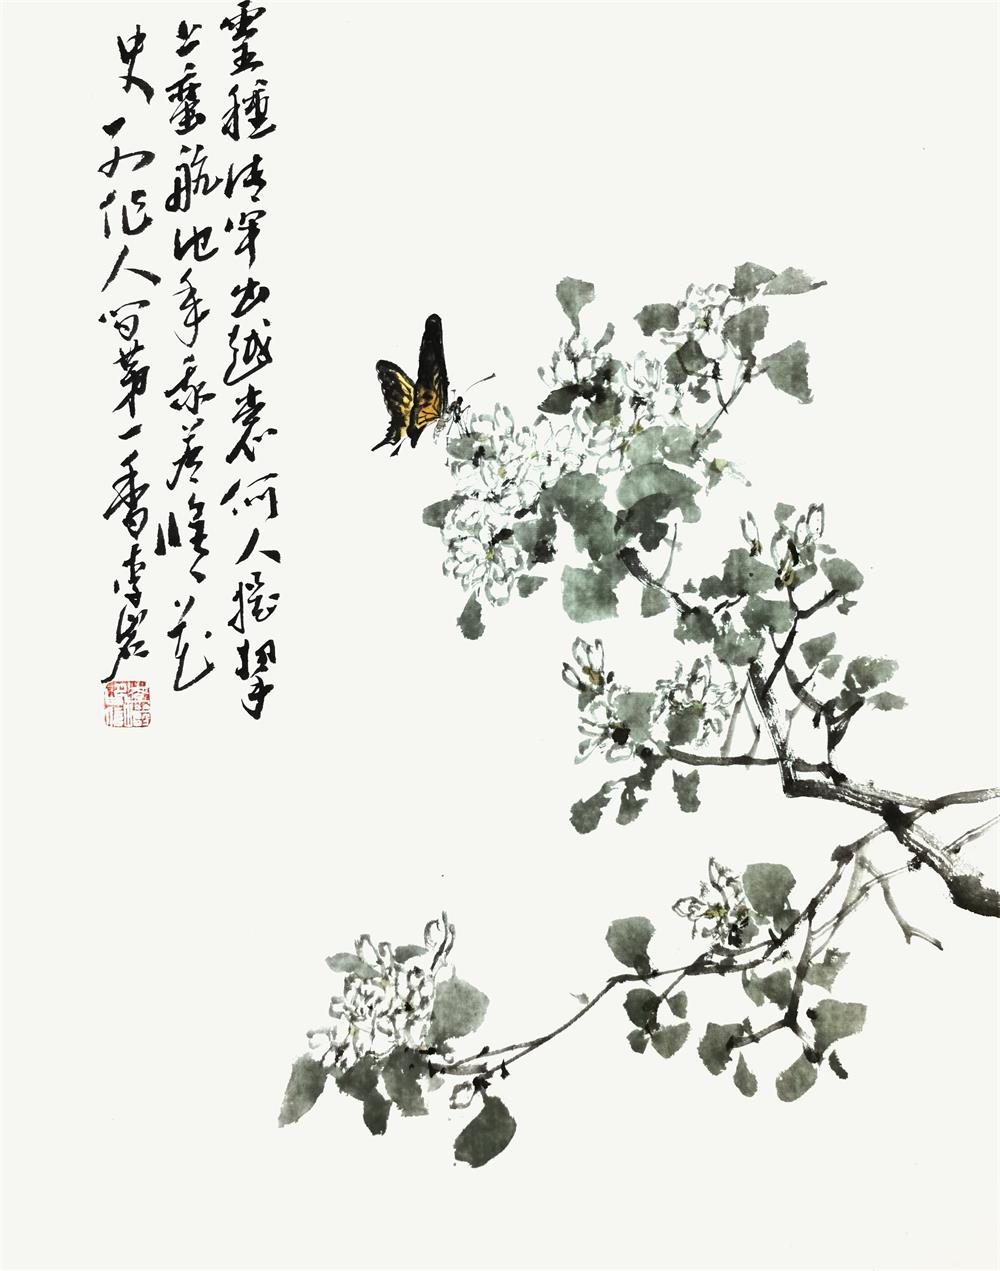 靈種清罕出越裳何人攜挈
上蠻航他年我若修花
史列作人間第一香